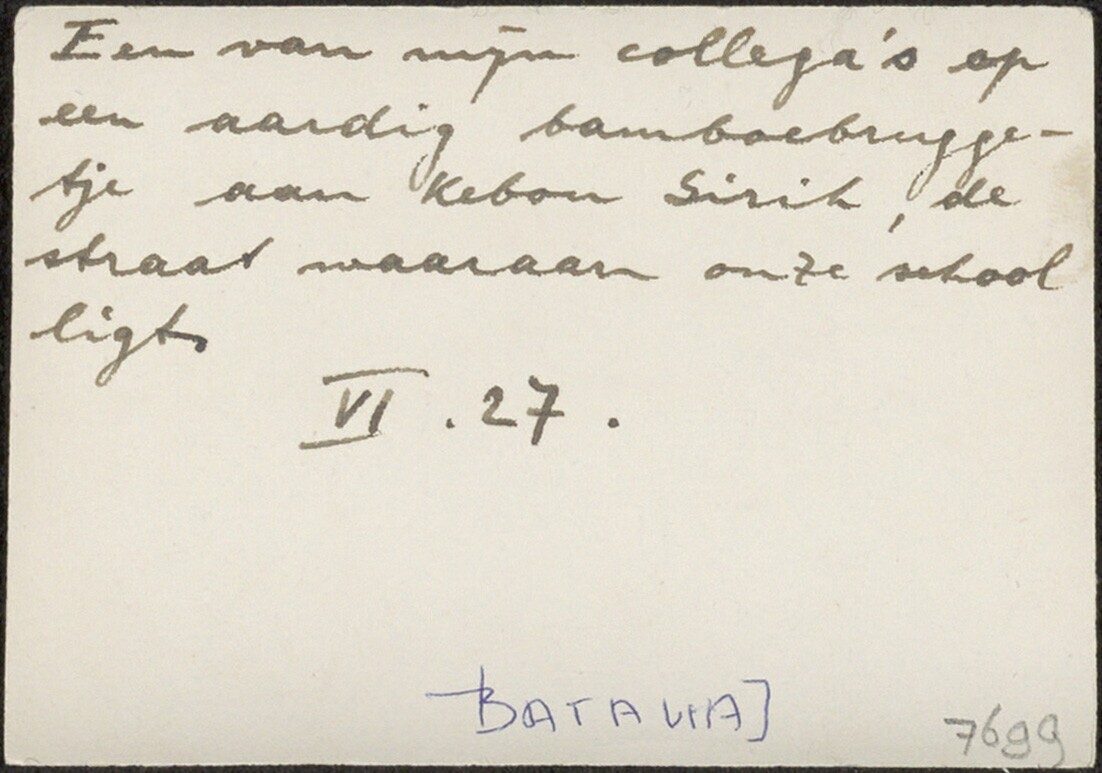 Een van mijn collega's op
een aardig bamboebrugge-
tje aan Kebon Sirih, de
straat waaraan onze school
ligt.
VI . 27 .
BATAVIA]
7699